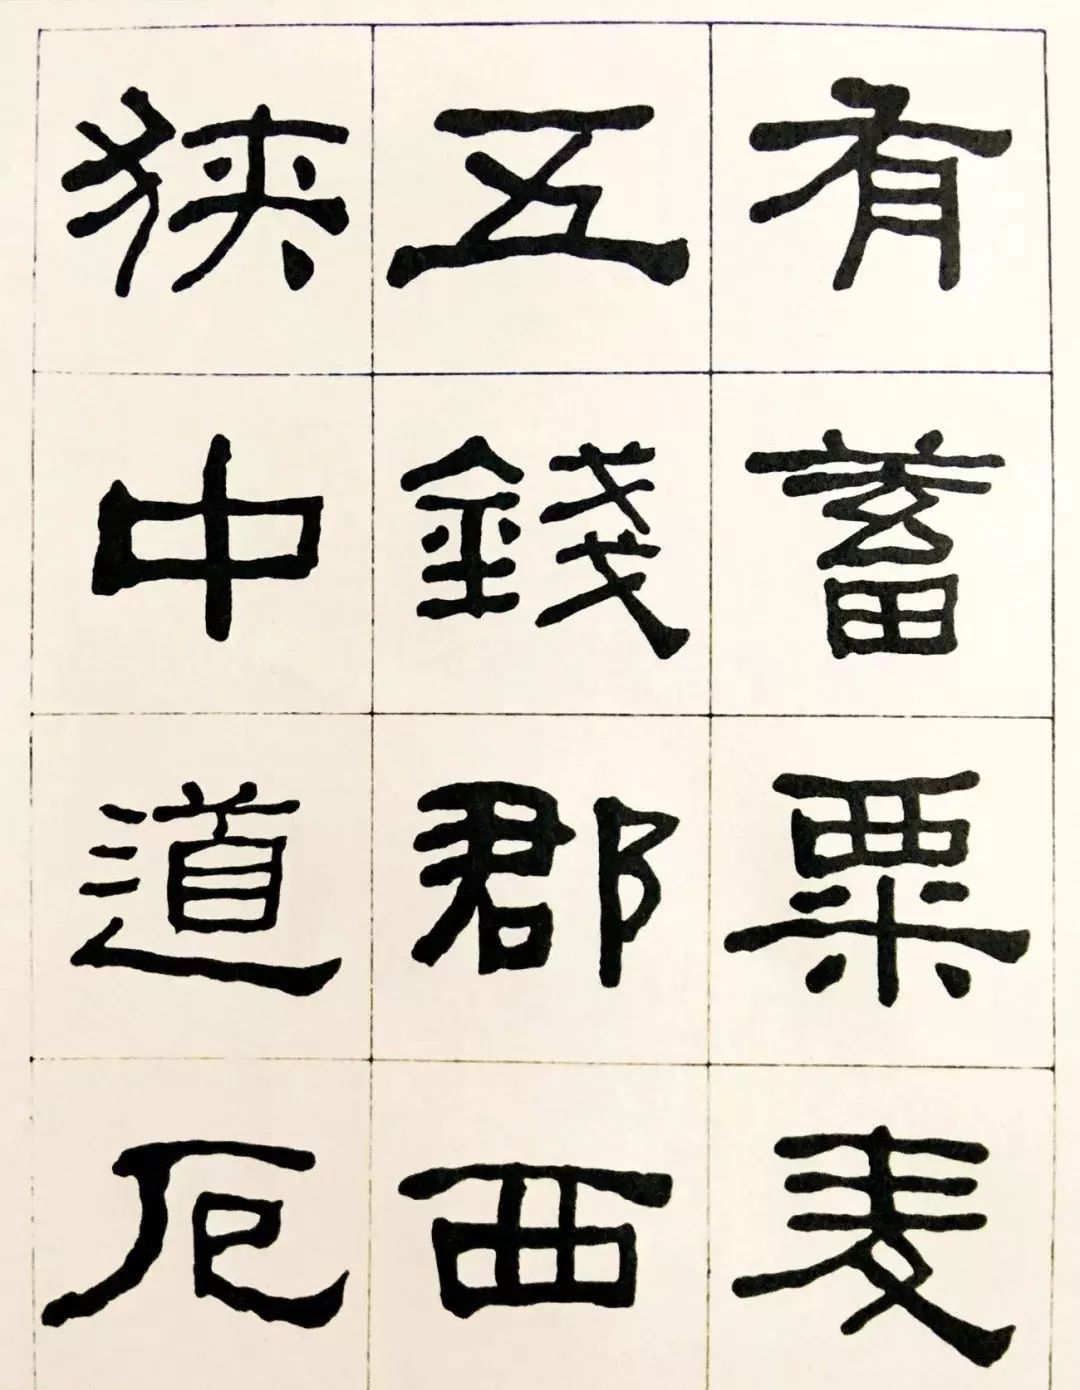 有蓄粟麦
五錢郡西
狹中道厄